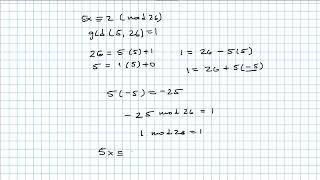 5x ≡ 2 (mod 26)
gcd(5, 26) = 1
26 = 5(5)+1   1 = 26 - 5(5)
5 = 1(5)+0   1 = 26 + 5(-5)
5(-5) = -25
-25 mod 26 = 1
1 mod 26 = 1
5x ≡